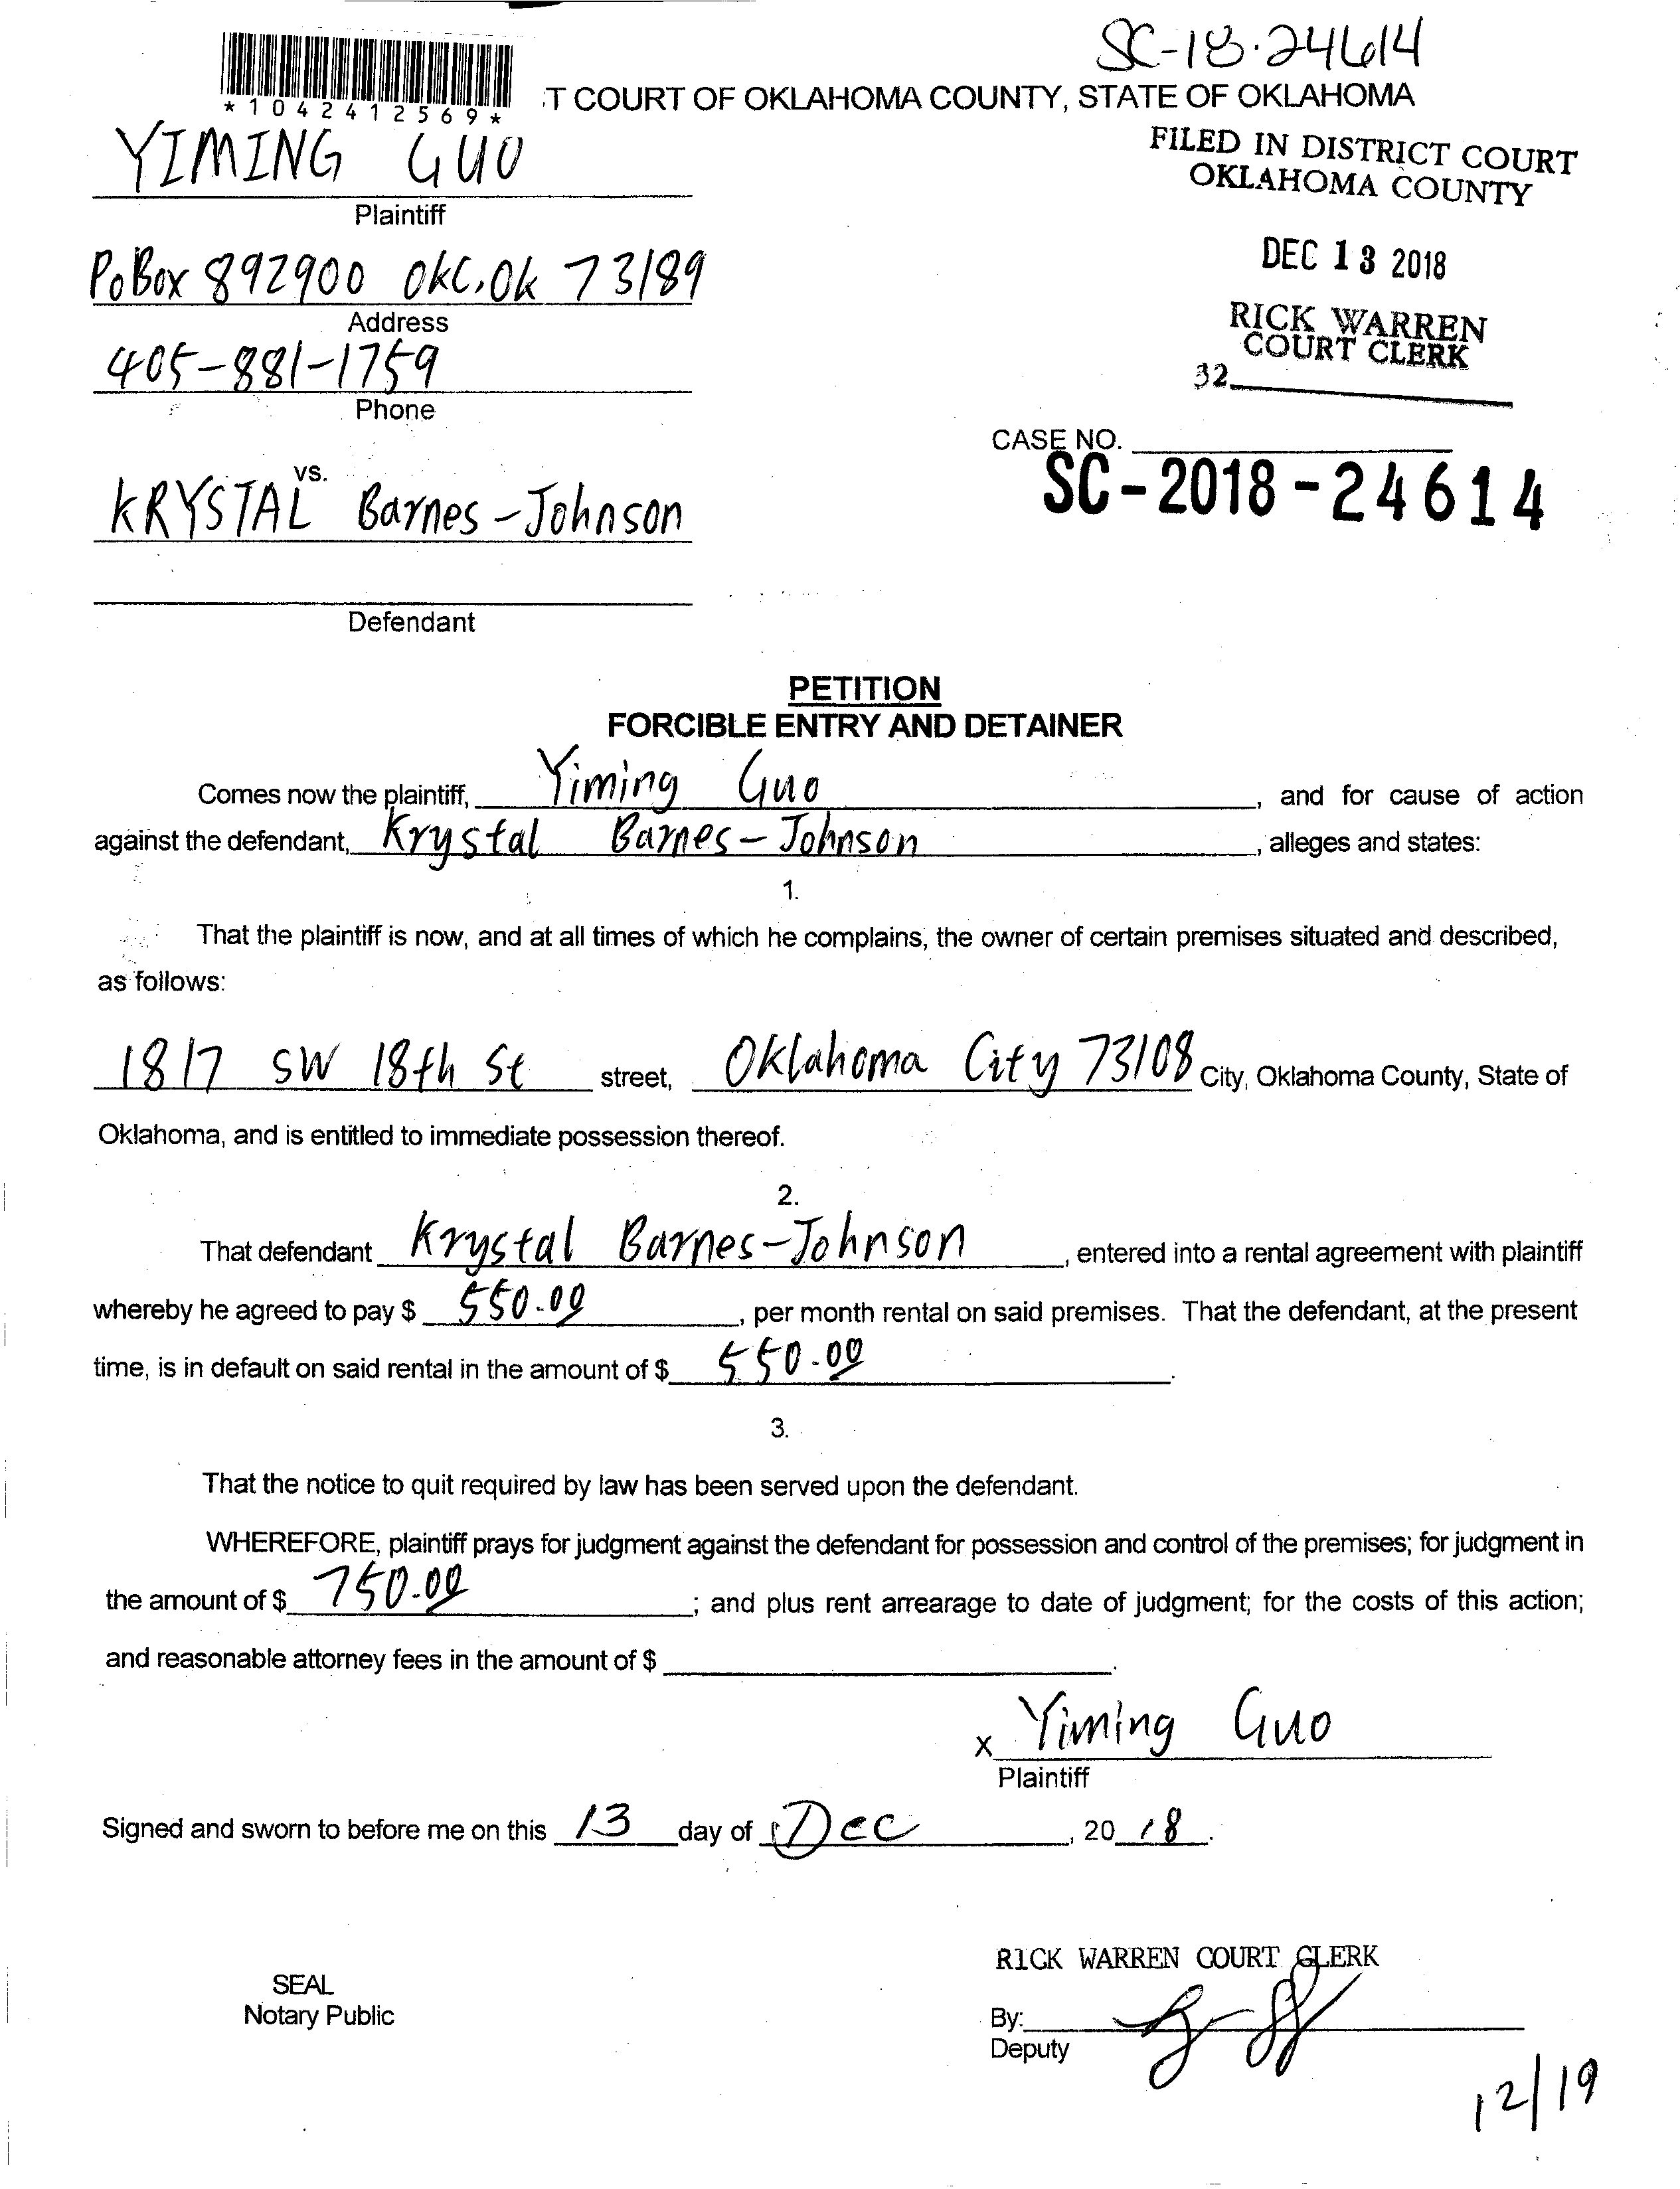 SC-18-24614
*1042412569*
T COURT OF OKLAHOMA COUNTY, STATE OF OKLAHOMA
YIMING GUO
Plaintiff
FILED IN DISTRICT COURT
OKLAHOMA COUNTY
PoBox 892900 OKC, Ok 73189
Address
DEC 13 2018
405-881-1759
Phone
RICK WARREN
COURT CLERK
32
CASE NO.
SC-2018-24614
vs.
KRYSTAL Barnes-Johnson
Defendant
PETITION
FORCIBLE ENTRY AND DETAINER
Comes now the plaintiff, Yiming Guo, and for cause of action
against the defendant, Krystal Barnes-Johnson, alleges and states:
1.
That the plaintiff is now, and at all times of which he complains, the owner of certain premises situated and described,
as follows:
1817 SW 18th St street, Oklahoma City 73108 City, Oklahoma County, State of
Oklahoma, and is entitled to immediate possession thereof.
2.
That defendant Krystal Barnes-Johnson, entered into a rental agreement with plaintiff
whereby he agreed to pay $ 550.00, per month rental on said premises. That the defendant, at the present
time, is in default on said rental in the amount of $ 550.00.
3.
That the notice to quit required by law has been served upon the defendant.
WHEREFORE, plaintiff prays for judgment against the defendant for possession and control of the premises; for judgment in
the amount of $ 750.00; and plus rent arrearage to date of judgment; for the costs of this action;
and reasonable attorney fees in the amount of $ .
x Yiming Guo
Plaintiff
Signed and sworn to before me on this 13 day of Dec, 20 18.
RICK WARREN COURT CLERK
SEAL
Notary Public
By:
Deputy
12/19